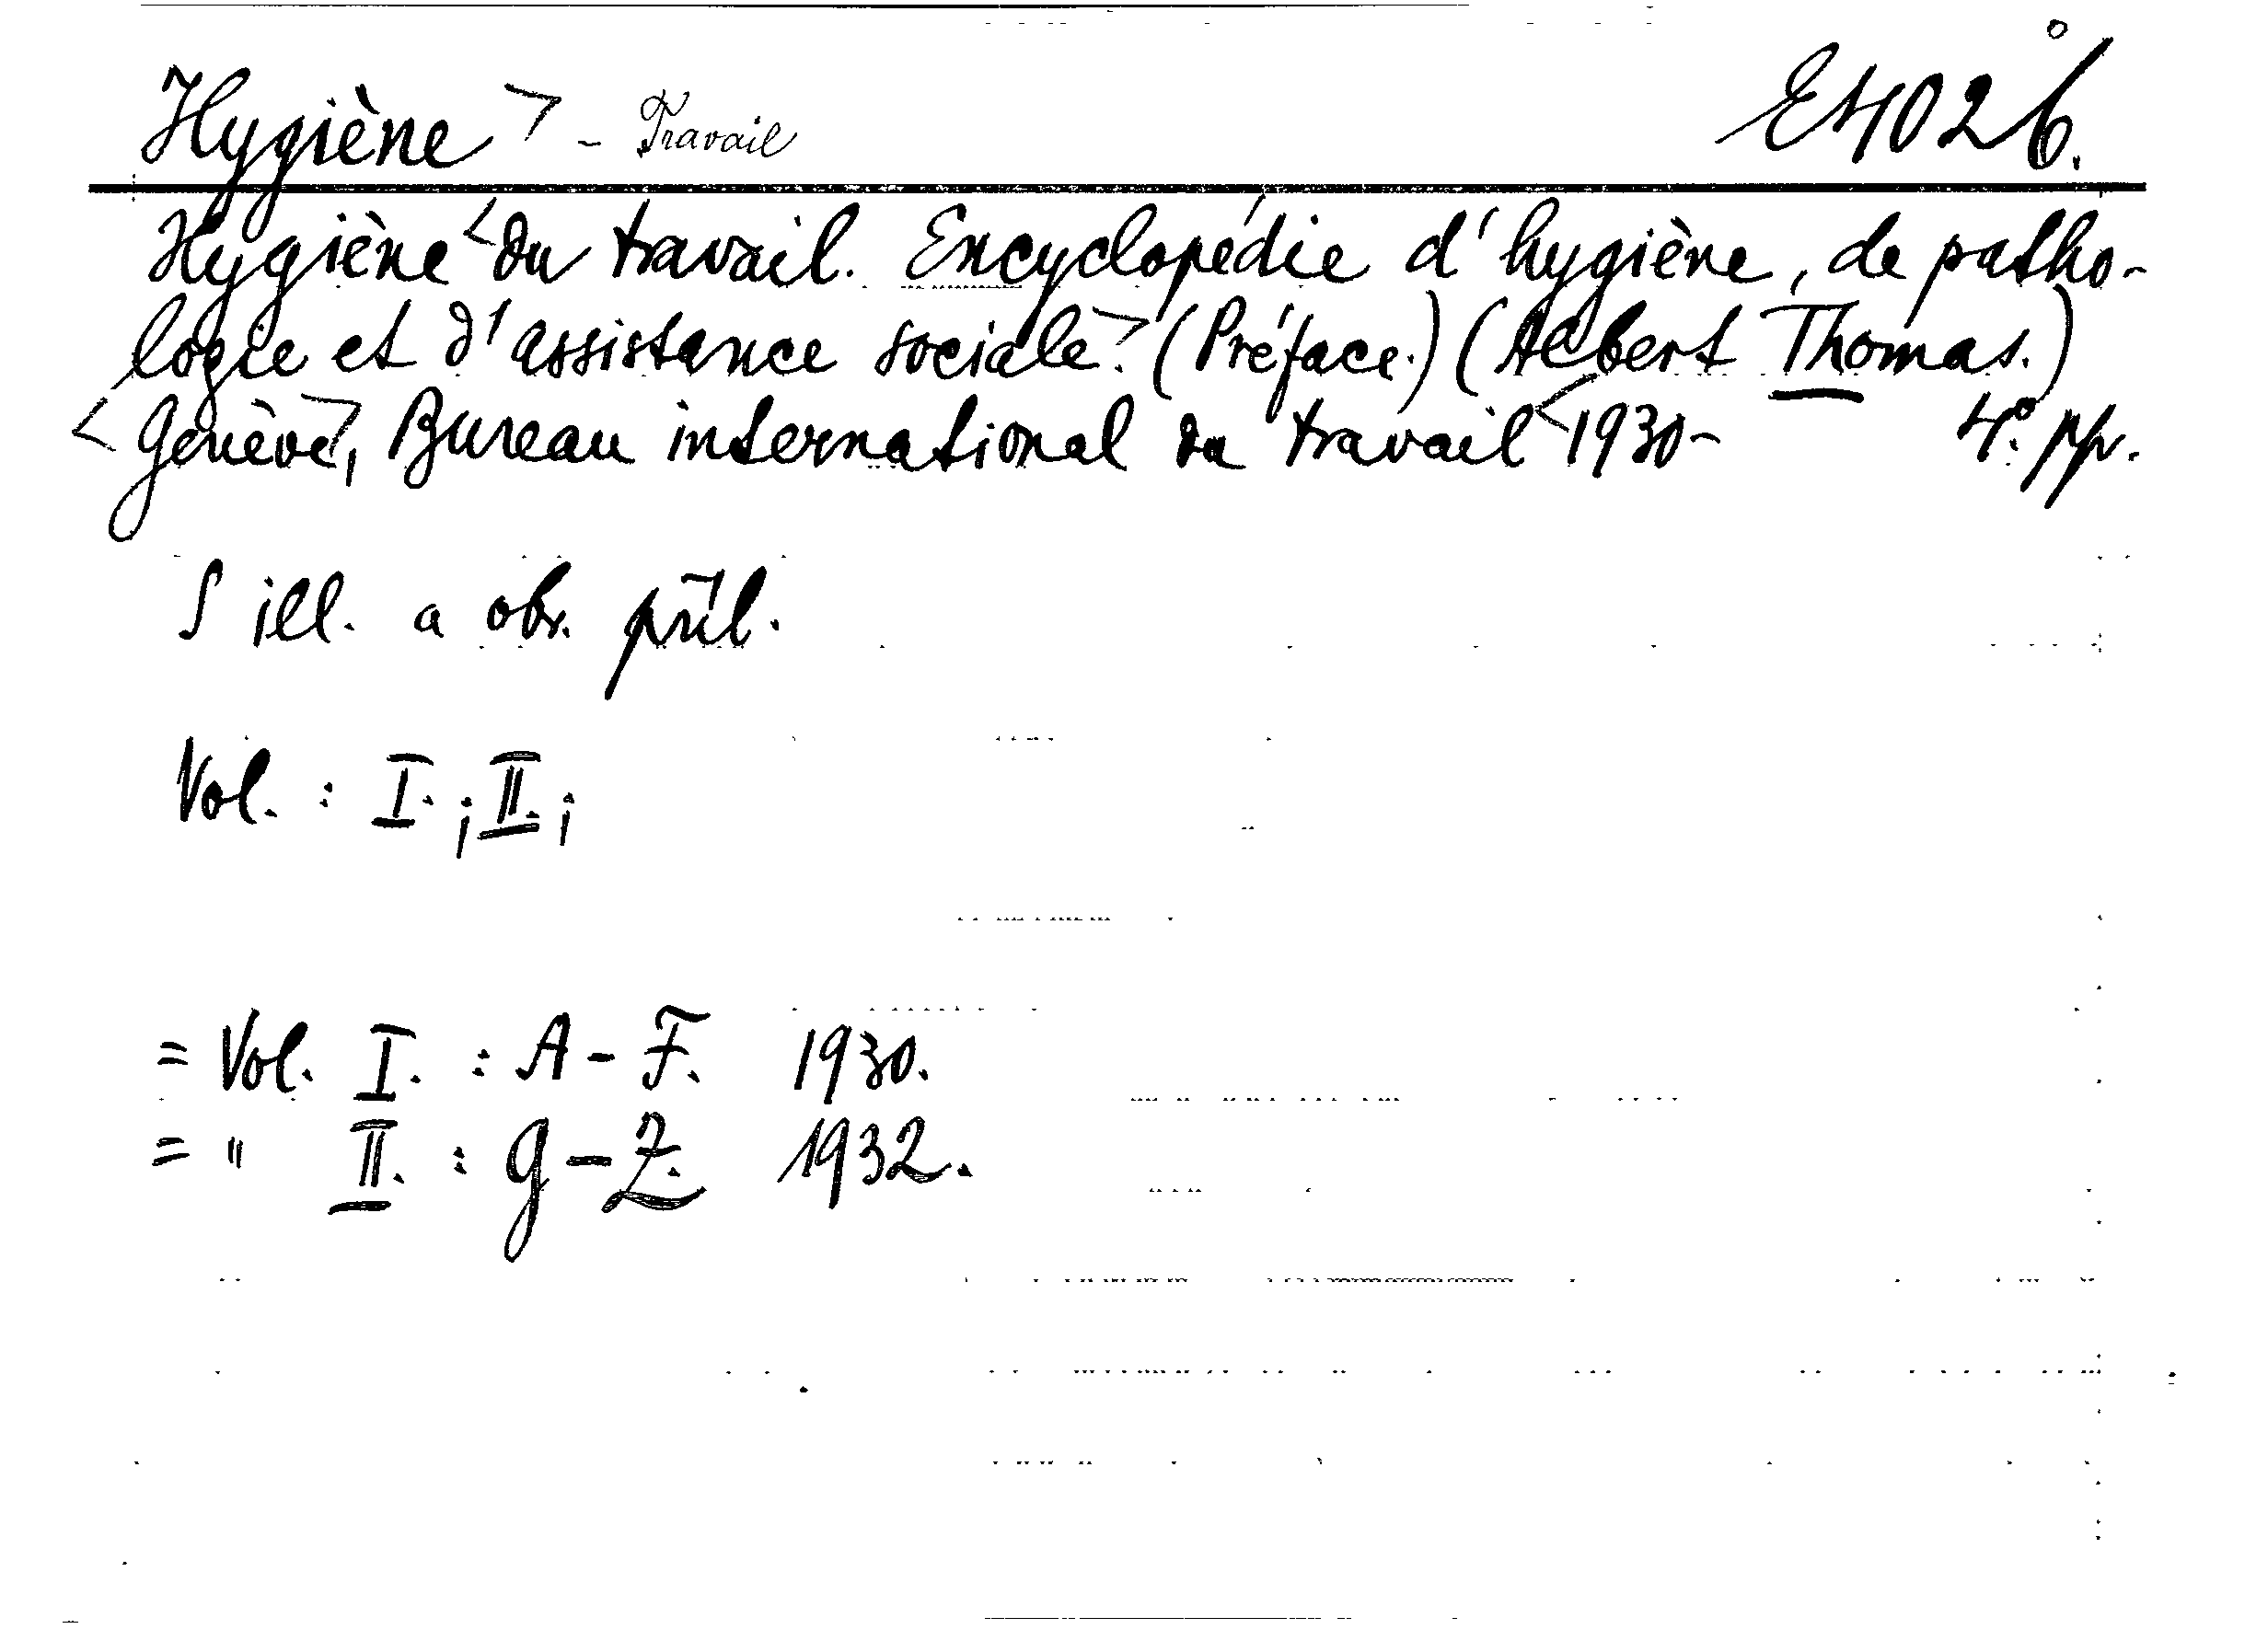 Hygiène > - Travail E 4026.
Hygiène < du travail. Encyclopédie d'hygiène, de patho-
logie et d'assistance sociale. > (Préface.) (Albert Thomas.)
< Genève >, Bureau international du travail < 1930- 4°. pp.
S ill. a obr. příl.
Vol. : I. ; II. ;
= Vol. I. : A - F. 1930.
= " II. : G - Z. 1932.